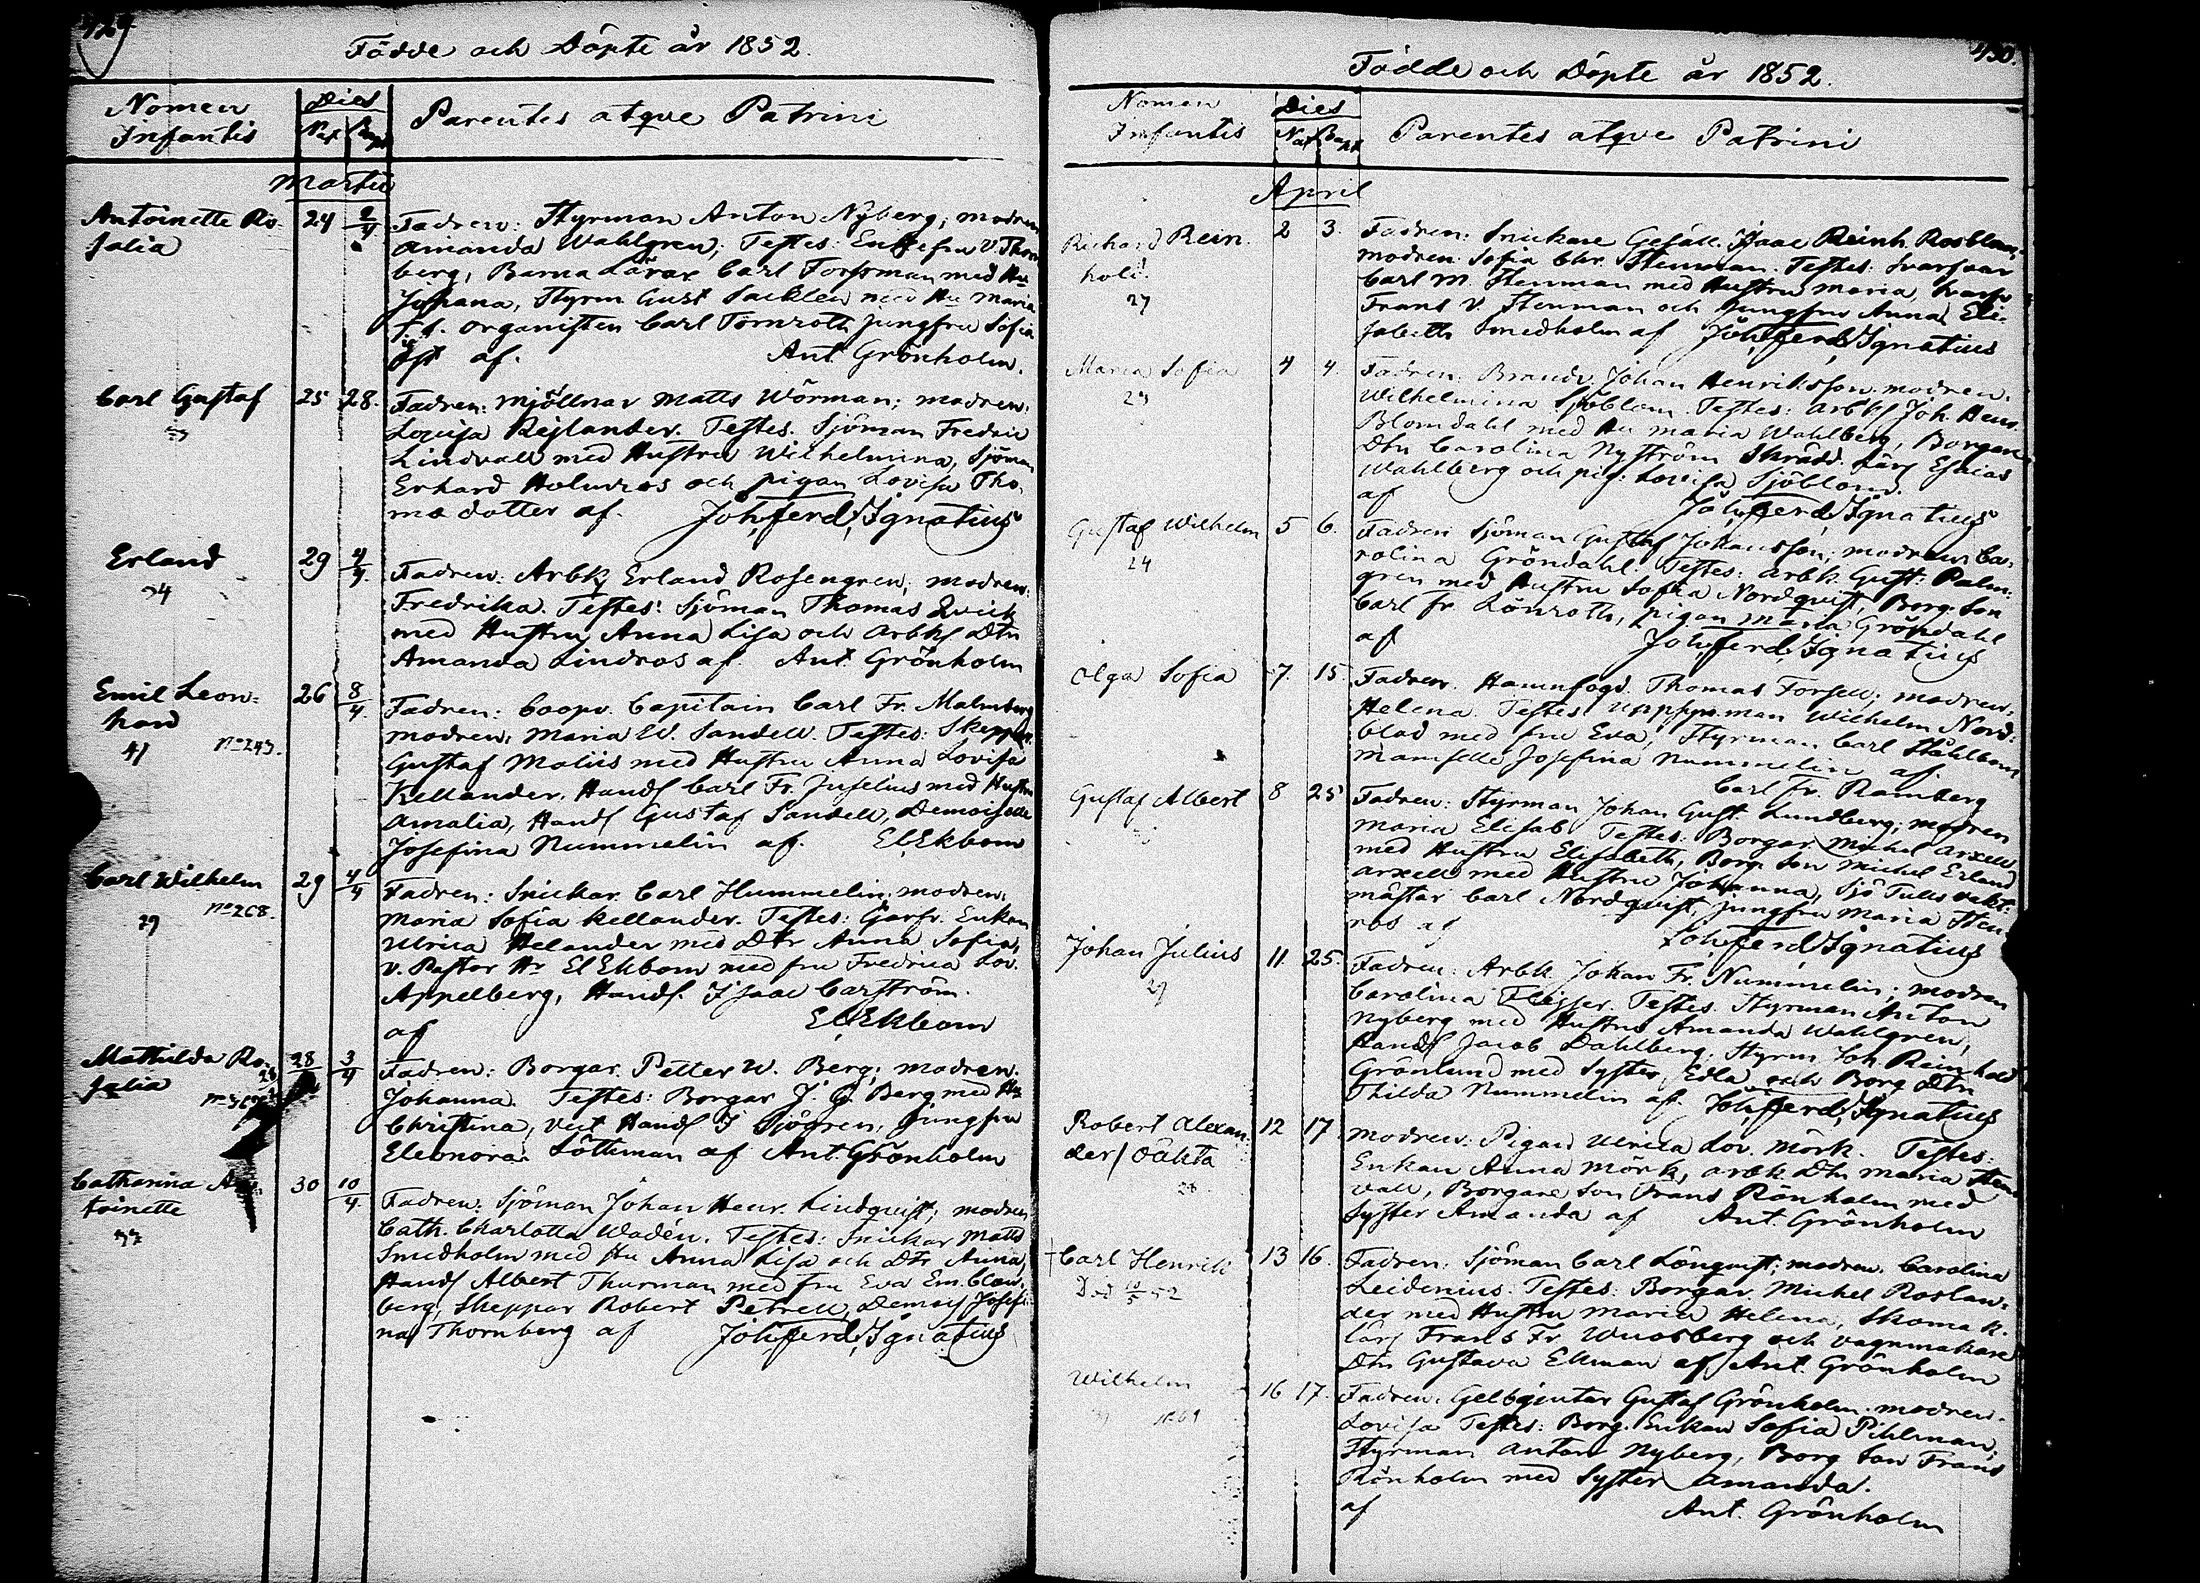 429
Födde och Döpte år 1852.
Nomen Infantis
Dies
Nat Bapt
Parentes atque Patrini
Martii
Antoinette Ro-
salia
24 2/4
Fadren: Styrman Anton Nyberg; modren
Amanda Wahlgren; Testes: Enkefru U Thorn
berg, Barna Lärar Carl Forssman med Hu
Johana, Styrm Gust Sacklen med Hu Maria
f.d. organisten Carl Törnroth Jungfru Sofia
Öst af. Ant Grönholm.
Carl Gustaf
25 28.
Fadren: Mjöllnar Matts Wörman; modren:
Lovisa Rejlander. Testes. Sjöman Fredric
Lindvall med Hustru Wilhelmina, Sjöman
Erhard Holmros och pigan Lovisa Tho-
mæ dotter af. Joh. Ferd. Ignatius
Erland
29 4/4.
Fadren: Arbk Erland Rosengren; modren:
Fredrika. Testes: Sjöman Thomas Qvick
med Hustru Anna Lisa och Arbks Dtr
Amanda Lindros af. Ant Grönholm
Emil Leon-
hard
41 No 243.
26 8/4.
Fadren: Coopv. Capitain Carl Fr. Malmberg
modren: Maria W. Sandell. Testes: Skeppar
Gustaf Moliis med Hustru Anna Lovisa
Kellander, Handl Carl Fr. Juselius med Hustru
Amalia, Handl Gustaf Sandell, Demoiselle
Josefina Nummelin af. El Ekbom
Carl Wilhelm
No 268.
29
29 4/4
Fadren: Snickar Carl Hummelin; modren:
Maria Sofia Kellander. Testes: Garfv. Enkan
Ulrica Helander med Dtr Anna Sofia,
v. Pastor Hr El Ekbom med fru Fredrica Lov.
Appelberg, Handl. Isaac Carström.
af El Ekbom
Mathilda Ro-
salia
28 3/4
Fadren: Borgar Petter W. Berg; modren:
Johanna. Testes: Borgar J. G. Berg med Hu
Christina, Handl J Sjögren, Jungfru
Eleonora Löthman af Ant. Grönholm
Catharina An-
toinette
30 10/4.
Fadren: Sjöman Johan Henr. Lindqvist; modren
Cath. Charlotta Wadén. Testes: Snickar Matts
Smedholm med Hu Anna Lisa och Dtr Anna,
Handl Albert Thurman med fru Eva Em. Blom-
berg, Skeppar Robert Petrell, Demois Josefi-
na Thornberg af Joh. Ferd. Ignatius
430.
Födde och Döpte år 1852.
Nomen Infantis
Dies
Nat Bapt
Parentes atqve Patrini
April
Richard Rein-
hold
27
2 3.
Fadren: Snickare Gesäll Isaac Reinh. Rosblom,
modren Sofia Chr. Stenman. Testes: Svarfvar
Carl M. Stenman med Hustru Maria,
Frans V. Stenman och Jungfru Anna Eli-
sabeth Smedholm af Joh. Ferd. Ignatius
Maria Sofia
4 4.
Fadren: Brandv. Johan Henriksson, modren.
Wilhelmina Sjöblom. Testes: Arbk Joh. Henr.
Blomdahl med Hu Maria Wahlberg, Borgare
Dtr Carolina Nyström Skrädd. Lärl Esaias
Wahlberg och pig: Lovisa Sjöblom.
af Joh. Ferd. Ignatius
Gustaf Wilhelm
24
5 6.
Fadren Sjöman Gustaf Johansson; modren: Ca-
rolina Gröndahl. Testes: Arbk. Gust. Palm-
gren med Hustru Sofia Nordqvist, Borg. Son
Carl Fr. Lönnroth, pigan Maria Gröndahl
af Joh. Ferd. Ignatius
Olga Sofia
7. 15.
Fadren. Hamnfogd. Thomas Forsell; modren:
Helena. Testes: Wilhelm Nord-
blad med fru Eva, Styrman Carl Ståhlbom
Mamselle Josefina Nummelin af.
Carl Fr. Ramberg
Gustaf Albert
8 25
Fadren: Styrman Johan Gust. Lundberg; modren
Maria Elisab Testes: Borgar Michel Arxell
med Hustru Elisabeth, Borg. Son Michel Erland
Arxell med Hustru Johanna, Sjö Tulls vakt-
mästar Carl Nordqvist, Jungfru Maria Sten-
ros af Joh. Ferd. Ignatius
Johan Julius
11 25.
Fadren: Arbk. Johan Fr. Nummelin; modren
Carolina Testes. Styrman Anton
Nyberg med Hustru Amanda Wahlgren,
Handl Jacob Dahlberg, Styrm Joh. Reinhold
Grönlund med Syster Edla och Borg Dtr
Thilda Nummelin af. Joh. Ferd. Ignatius
Robert Alexan-
der / Oäkta
12 17.
modren: Pigan Ulrica Lov. Mörk. Testes:
Enkan Anna Mörk, Arbk Dtr Maria Sten-
vall, Borgare Son Frans Rönholm med
Syster Amanda af Ant. Grönholm
† Carl Henrik
Död 10/5 52
13 16.
Fadren: Sjöman Carl Lönqvist; modren. Carolina
Leidenius. Testes: Borgar Michel Roslan-
der med Hustru Maria Helena, Skomak.
Lärl Frans Fr. Wuosberg och vagnmakare
Dtr Gustava Ekman af Ant. Grönholm
Wilhelm
16 17.
Fadren. Gelbgjutar Gustaf Grönholm. modren.
Lovisa Testes: Borg. Enkan Sofia Pihlman,
Styrman Anton Nyberg, Borg Son Frans
Rönholm med Syster Amanda.
af Ant. Grönholm